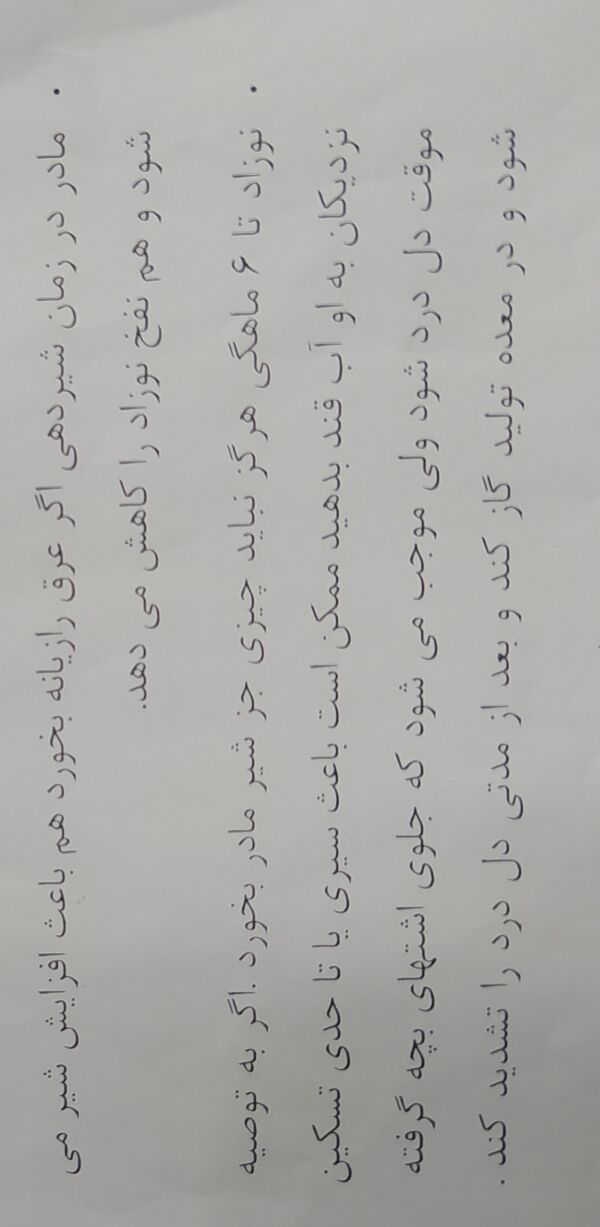 • مادر در زمان شیردهی اگر عرق رازیانه بخورد هم باعث افزایش شیر می
شود و هم نفخ نوزاد را کاهش می دهد.
• نوزاد تا ۶ ماهگی هرگز نباید چیزی جز شیر مادر بخورد .اگر به توصیه
نزدیکان به او آب قند بدهید ممکن است باعث سیری یا تا حدی تسکین
موقت دل درد شود ولی موجب می شود که جلوی اشتهای بچه گرفته
شود و در معده تولید گاز کند و بعد از مدتی دل درد را تشدید کند .